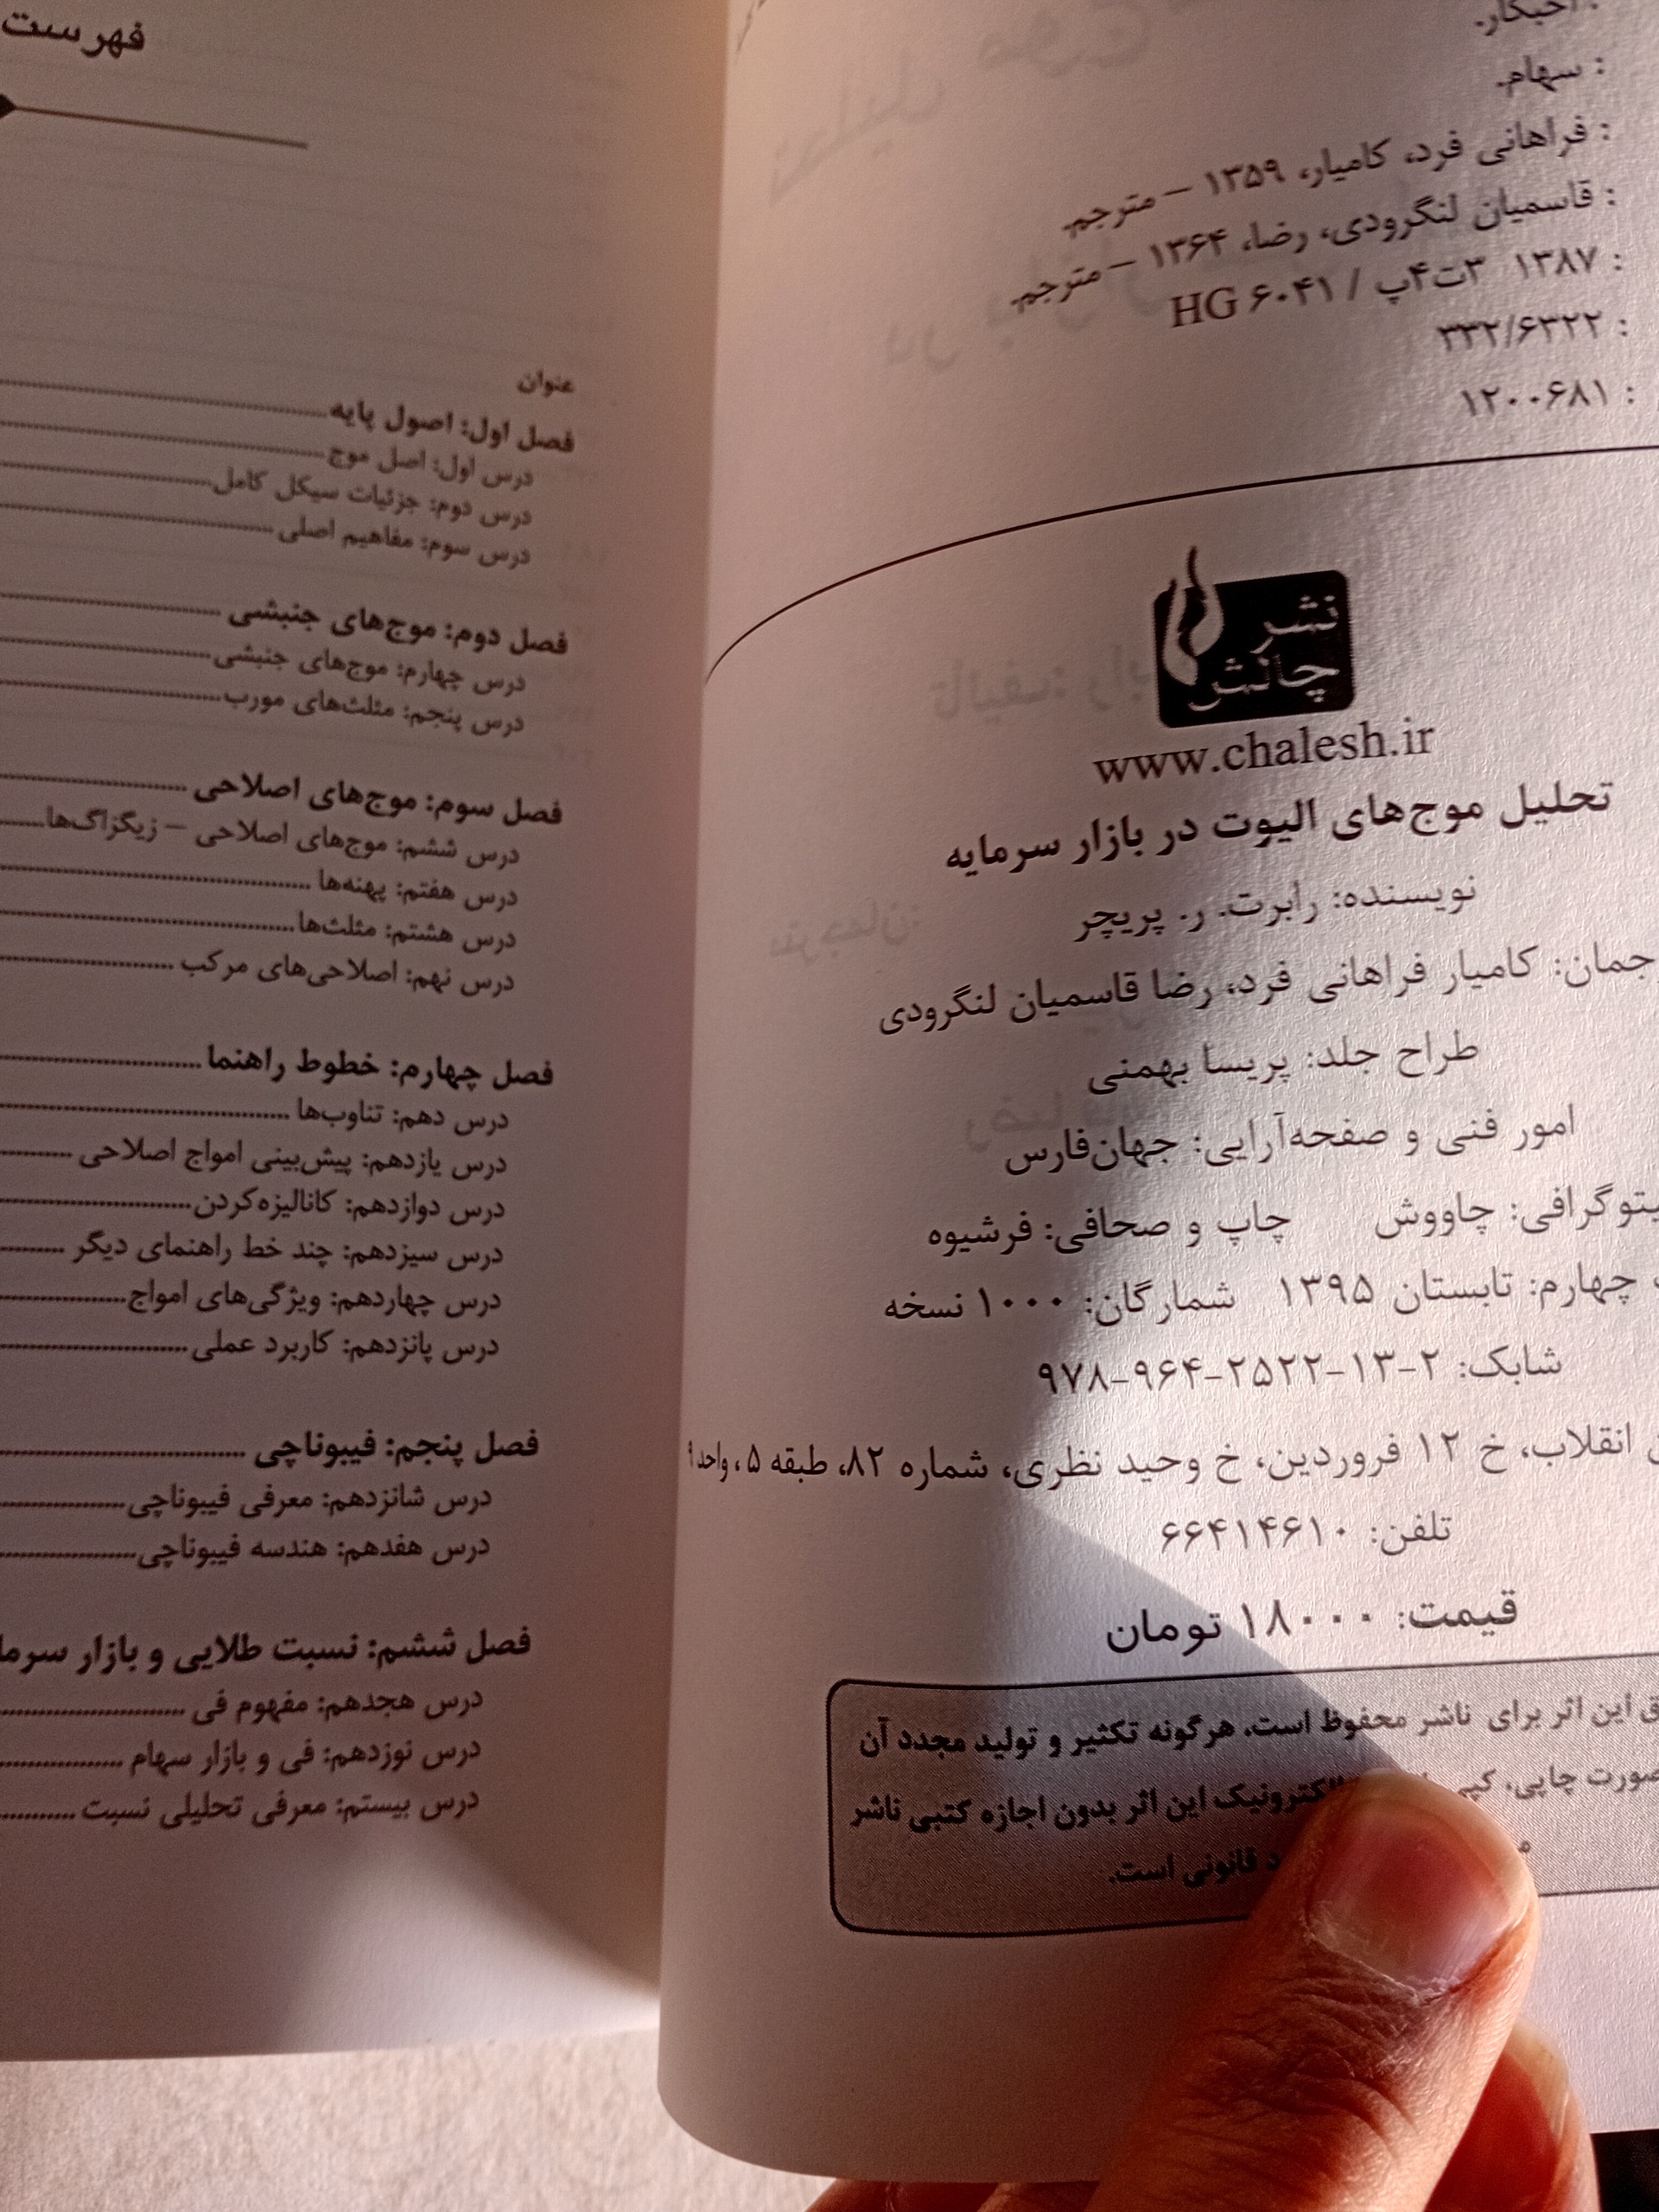 : سهام.
: فراهانی فرد، کامیار، ۱۳۵۹ – مترجم.
: قاسمیان لنگرودی، رضا، ۱۳۶۴ – مترجم.
: ۱۳۸۷ ۳ت۴پ / HG ۶۰۴۱
: ۳۳۲/۶۳۲۲
: ۱۲۰۰۶۸۱
نشر
چالش
www.chalesh.ir
تحلیل موج‌های الیوت در بازار سرمایه
نویسنده: رابرت. ر. پریچر
کامیار فراهانی فرد، رضا قاسمیان لنگرودی
طراح جلد: پریسا بهمنی
امور فنی و صفحه‌آرایی: جهان‌فارس
چاووش چاپ و صحافی: فرشیوه
چهارم: تابستان ۱۳۹۵ شمارگان: ۱۰۰۰ نسخه
شابک: ۲-۱۳-۲۵۲۲-۹۶۴-۹۷۸
انقلاب، خ ۱۲ فروردین، خ وحید نظری، شماره ۸۲، طبقه ۵، واحد ۹
تلفن: ۶۶۴۱۴۶۱۰
قیمت: ۱۸۰۰۰ تومان
این اثر برای ناشر محفوظ است. هرگونه تکثیر و تولید مجدد آن
چاپی، کپی الکترونیک این اثر بدون اجازه کتبی ناشر
قانونی است.
فهرست
عنوان
فصل اول: اصول پایه
درس اول: اصل موج
درس دوم: جزئیات سیکل کامل
درس سوم: مفاهیم اصلی
فصل دوم: موج‌های جنبشی
درس چهارم: موج‌های جنبشی
درس پنجم: مثلث‌های مورب
فصل سوم: موج‌های اصلاحی
درس ششم: موج‌های اصلاحی – زیگزاگ‌ها
درس هفتم: پهنه‌ها
درس هشتم: مثلث‌ها
درس نهم: اصلاحی‌های مرکب
فصل چهارم: خطوط راهنما
درس دهم: تناوب‌ها
درس یازدهم: پیش‌بینی امواج اصلاحی
درس دوازدهم: کانالیزه‌کردن
درس سیزدهم: چند خط راهنمای دیگر
درس چهاردهم: ویژگی‌های امواج
درس پانزدهم: کاربرد عملی
فصل پنجم: فیبوناچی
درس شانزدهم: معرفی فیبوناچی
درس هفدهم: هندسه فیبوناچی
فصل ششم: نسبت طلایی و بازار
درس هجدهم: مفهوم فی
درس نوزدهم: فی و بازار سهام
درس بیستم: معرفی تحلیلی نسبت